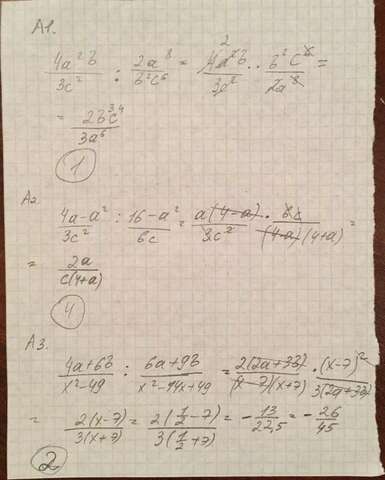 A1.
4a²b/3c² : 2a⁸/b²c⁶ = 4a²b/3c² · b²c⁶/2a⁸ =
= 2b³c⁴/3a⁶
1
A2
4a-a²/3c² : 16-a²/6c = a(4-a)/3c² · 6c/(4-a)(4+a) =
= 2a/c(4+a)
4
A3.
4a+6b/x²-49 : 6a+9b/x²-14x+49 = 2(2a+3b)/(x-7)(x+7) · (x-7)²/3(2a+3b)
= 2(x-7)/3(x+7) = 2(1/2-7)/3(1/2+7) = -13/22,5 = -26/45
2